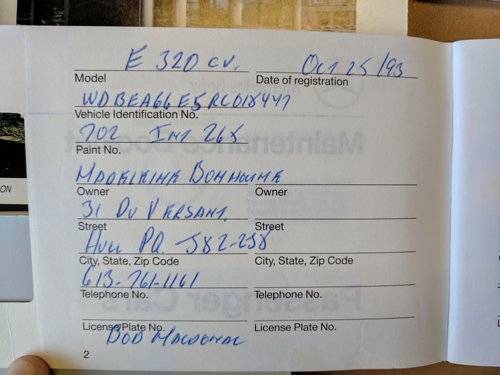 E 320 CV. Oct 25/93
Model Date of registration
WDBEA66E5RC018447
Vehicle Identification No.
702 Int 268
Paint No.
Owner Owner
31 Du Versant.
Street Street
Hull PQ J82-
City, State, Zip Code City, State, Zip Code
613-761-1161
Telephone No. Telephone No.
License Plate No. License Plate No.
Bob Macdonal
2
ON